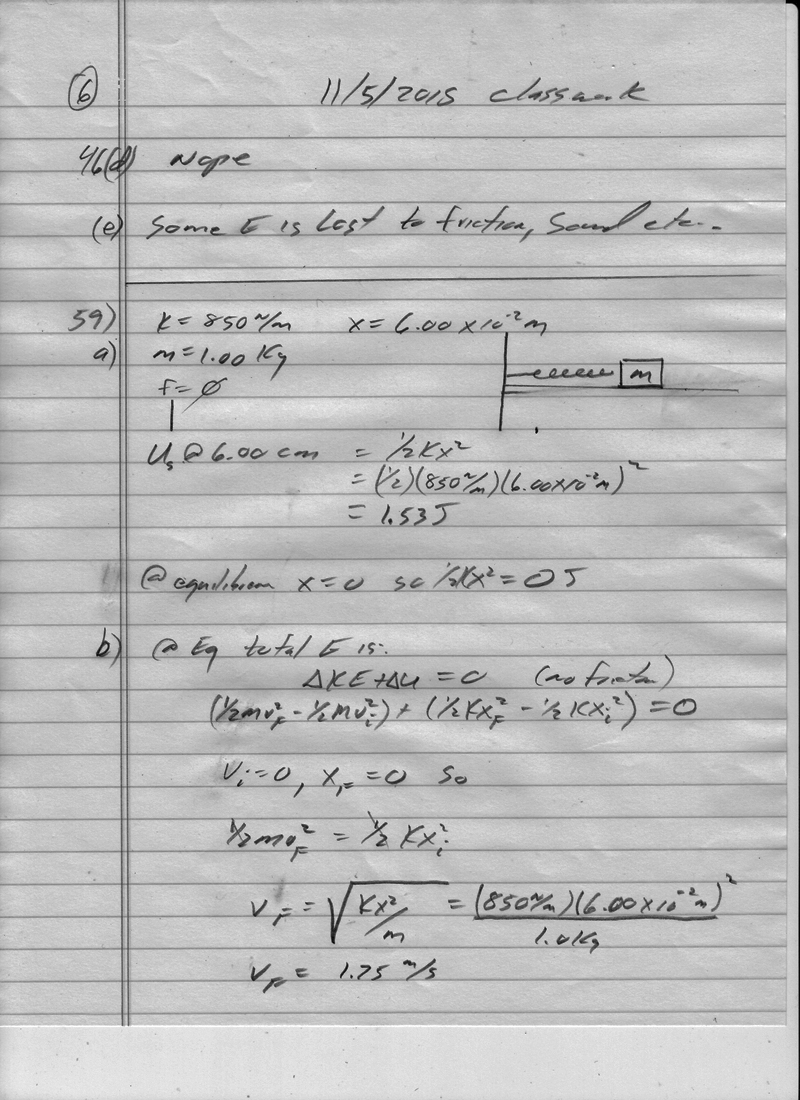 6 11/5/2015 classwork
46(d) Nope
(e) Some E is Lost to friction, Sound etc..
59) K = 850 N/m x = 6.00 x 10⁻² m
a) m = 1.00 Kg
m
f = ∅
Uₛ @ 6.00 cm = ½Kx²
= (½)(850 N/m)(6.00x10⁻² m)²
= 1.53J
@ equilibrium x = 0 so ½Kx² = 0 J
b) @ Eq total E is:
ΔKE + ΔU = 0 (no friction)
(½mv_F² - ½mv_i²) + (½Kx_F² - ½Kx_i²) = 0
V_i = 0, x_F = 0 so
½mv_F² = ½Kx_i²
V_F = √(Kx²/m) = (850 N/m)(6.00x10⁻² m)² / 1.0 Kg
V_F = 1.75 m/s